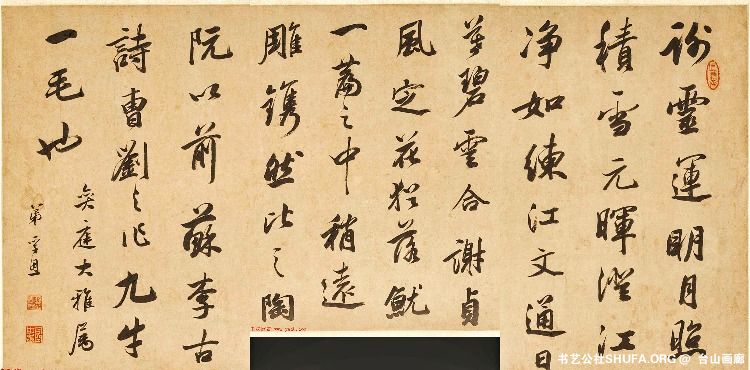 謝靈運明月照
積雪元暉澄江
净如練江文通日
莫碧雲合謝貞
風定花猶落就
一篇之中稍遠
雕鐫然比之陶
阮以前蘇李古
詩曹劉之作九牛
一毛也
奕庭大雅属
弟孚恩
书艺公社SHUFA.ORG @ 台山画廊